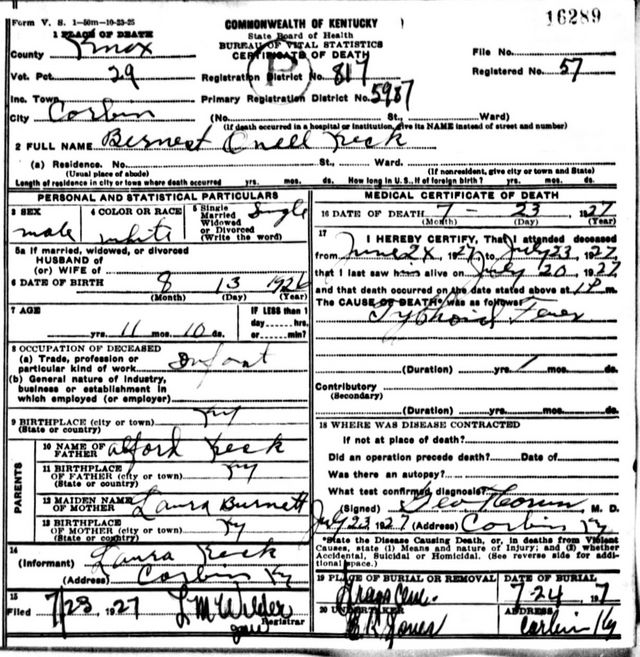 Form V. S. 1-50m-10-23-25
16289
COMMONWEALTH OF KENTUCKY
State Board of Health
BUREAU OF VITAL STATISTICS
CERTIFICATE OF DEATH
1 PLACE OF DEATH
County Knox
File No.
Vot. Pct. 29
Registration District No. 817
Registered No. 57
Inc. Town
Primary Registration District No. 5987
City Corbin (No. St., Ward)
(If death occurred in a hospital or institution, give its NAME instead of street and number)
2 FULL NAME Bernest Oneil Keck
(a) Residence. No. St., Ward.
(Usual place of abode) (If nonresident, give city or town and State)
Length of residence in city or town where death occurred yrs. mos. ds. How long in U.S., if of foreign birth? yrs. mos. ds.
PERSONAL AND STATISTICAL PARTICULARS
3 SEX
male
4 COLOR OR RACE
white
5 Single
Married
Widowed
or Divorced
(Write the word)
Single
5a If married, widowed, or divorced
HUSBAND of
(or) WIFE of
6 DATE OF BIRTH 8 13 1926
(Month) (Day) (Year)
7 AGE
yrs. 11 mos. 10 ds.
IF LESS than 1
day hrs.
or min?
8 OCCUPATION OF DECEASED
(a) Trade, profession or
particular kind of work Infant
(b) General nature of Industry,
business or establishment in
which employed (or employer)
9 BIRTHPLACE (city or town) Ky
(State or country)
PARENTS
10 NAME OF
FATHER Alford Keck
11 BIRTHPLACE
OF FATHER (city or town) Ky
(State or country)
12 MAIDEN NAME
OF MOTHER Laura Burnett
13 BIRTHPLACE
OF MOTHER (city or town) Ky
(State or country)
14
(Informant) Laura Keck
(Address) Corbin Ky
15
Filed 7/23 1927 L M Wilder
Registrar
MEDICAL CERTIFICATE OF DEATH
16 DATE OF DEATH 7 - 23 1927
(Month) (Day) (Year)
17
I HEREBY CERTIFY, That I attended deceased
from June 1927, to July 23, 1927
that I last saw him alive on July 20, 1927
and that death occurred on the date stated above at 1 P m.
The CAUSE OF DEATH* was as follows:
Typhoid Fever
(Duration) yrs. 1 mos. ds.
Contributory
(Secondary)
(Duration) yrs. mos. ds.
18 WHERE WAS DISEASE CONTRACTED
If not at place of death?
Did an operation precede death? Date of
Was there an autopsy?
What test confirmed diagnosis?
(Signed) Geo , M. D.
July 23 1927 (Address) Corbin Ky
*State the Disease Causing Death, or, in deaths from Violent
Causes, state (1) Means and nature of Injury; and (2) whether
Accidental, Suicidal or Homicidal. (See reverse side for addi-
tional space.)
19 PLACE OF BURIAL OR REMOVAL
Cem.
DATE OF BURIAL
7-24 1927
20 UNDERTAKER
Jones
Corbin Ky